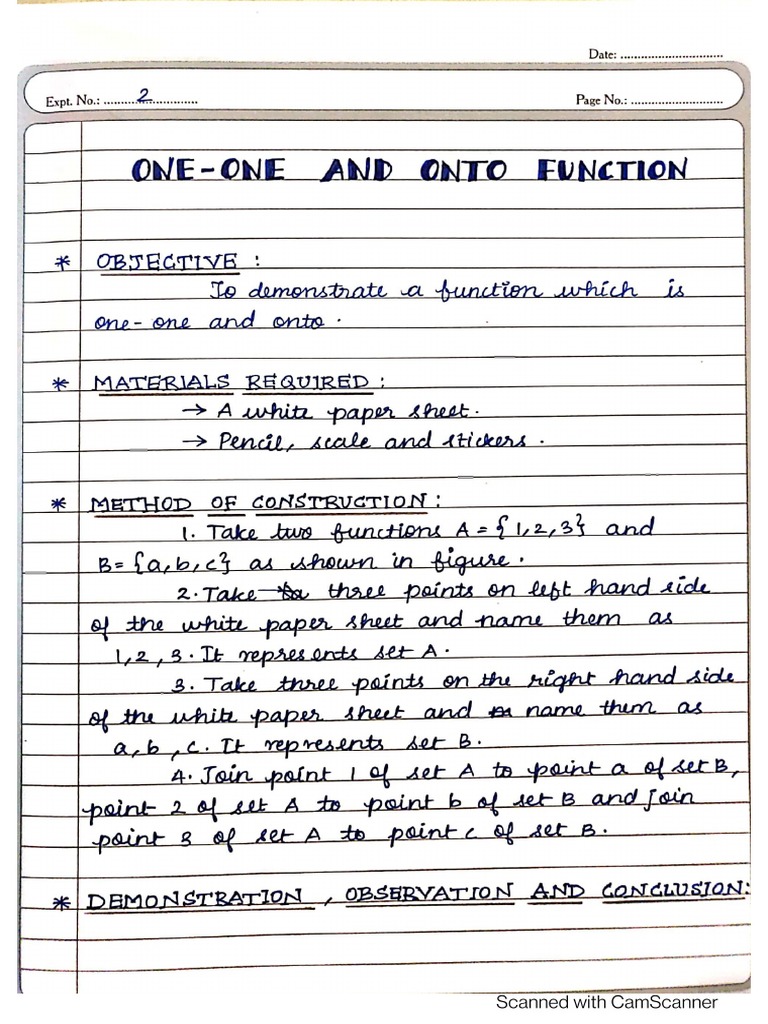 Date: ..............................
Expt. No.: ..........2..............
Page No.: ...........................
ONE-ONE AND ONTO FUNCTION
* OBJECTIVE :
To demonstrate a function which is
one-one and onto.
* MATERIALS REQUIRED :
→ A white paper sheet.
→ Pencil, scale and stickers.
* METHOD OF CONSTRUCTION :
1. Take two functions A = {1,2,3} and
B = {a,b,c} as shown in figure.
2. Take three points on left hand side
of the white paper sheet and name them as
1,2,3. It represents set A.
3. Take three points on the right hand side
of the white paper sheet and name them as
a,b,c. It represents set B.
4. Join point 1 of set A to point a of set B,
point 2 of set A to point b of set B and join
point 3 of set A to point c of set B.
* DEMONSTRATION, OBSERVATION AND CONCLUSION:
Scanned with CamScanner